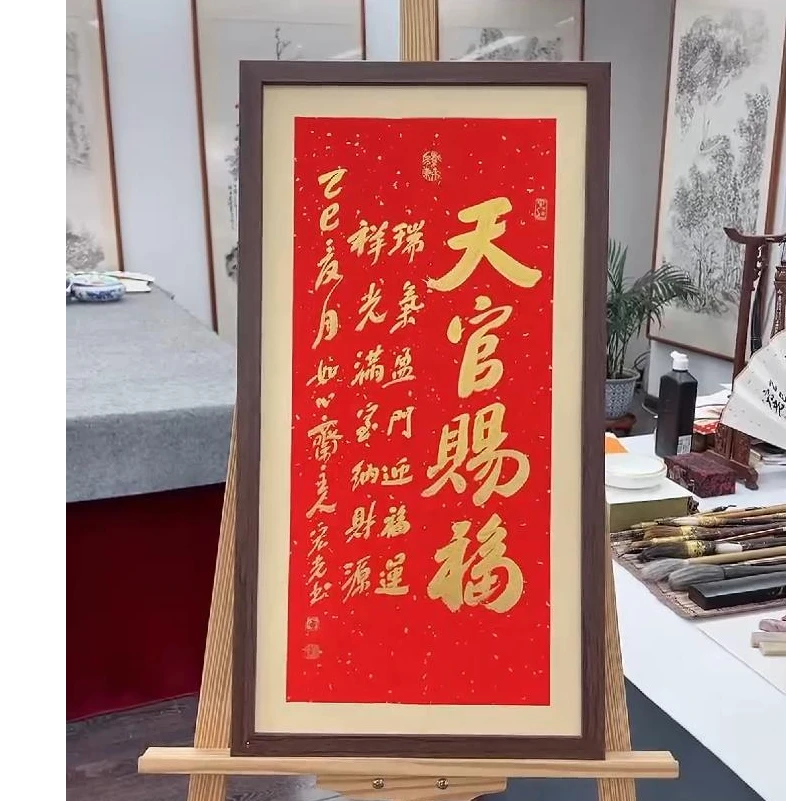 天官賜福
瑞氣盈門迎福運
祥光满室纳财源
乙巳夏月如心齋主人宏光书